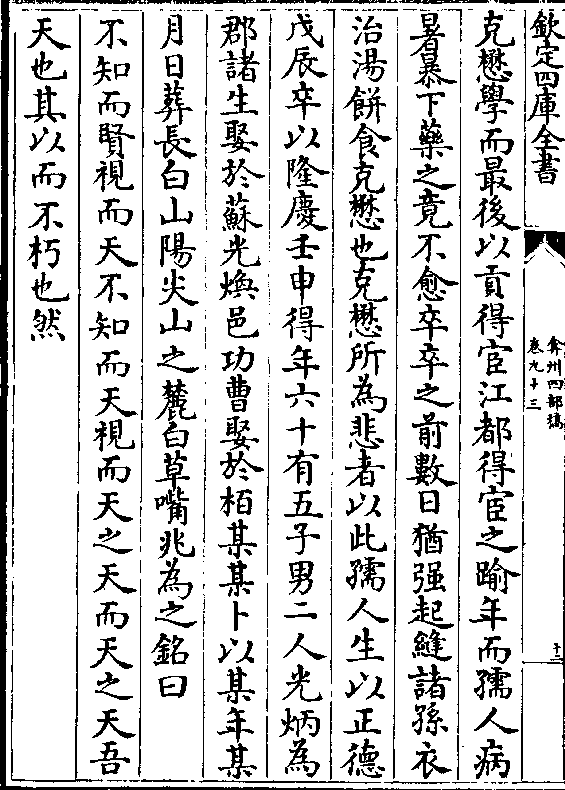 欽定四庫全書
弇州四部稿
卷九十三
十二
克懋學而最後以貢得官江都得官之踰年而孺人病
暑暴下藥之竟不愈卒卒之前數日猶强起縫諸孫衣
治湯餅食克懋也克懋所為悲者以此孺人生以正德
戊辰卒以隆慶壬申得年六十有五子男二人光炳為
郡諸生娶於蘇光煥邑功曹娶於栢某某卜以某年某
月日葬長白山陽尖山之麓白草嘴兆為之銘曰
不知而賢視而天不知而天視而天之天而天之天吾
天也其以而不朽也然